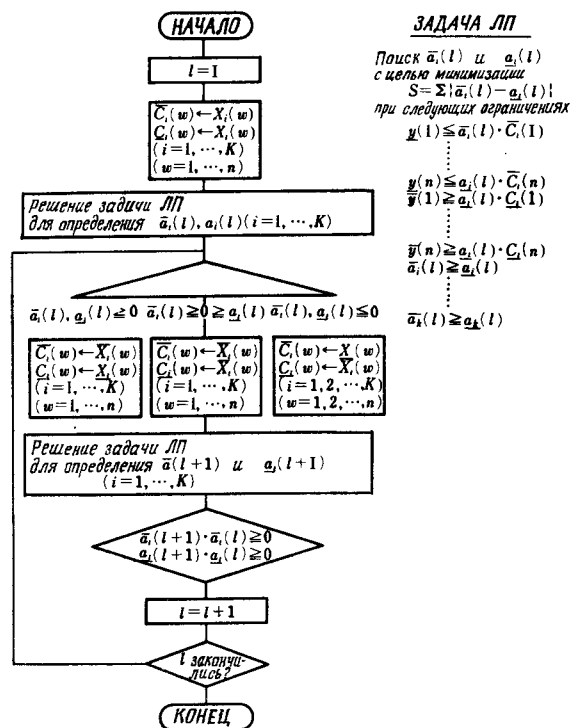 НАЧАЛО
l=1
C̅ᵢ(w)←Xᵢ(w)
C̲ᵢ(w)←Xᵢ(w)
(i=1, ⋯, K)
(w=1, ⋯, n)
Решение задачи ЛП
для определения a̅ᵢ(l), aᵢ(l)(i=1, ⋯, K)
a̅ᵢ(l), a̲ᵢ(l)≧0 a̅ᵢ(l)≧0≧a̲ᵢ(l) a̅ᵢ(l), a̲ᵢ(l)≦0
C̅ᵢ(w)←X̅ᵢ(w)
C̲ᵢ(w)←X̲ᵢ(w)
(i=1, ⋯, K)
(w=1, ⋯, n)
C̅ᵢ(w)←X̅ᵢ(w)
C̲ᵢ(w)←X̅ᵢ(w)
(i=1, ⋯, K)
(w=1, ⋯, n)
C̅ᵢ(w)←X̲(w)
C̲ᵢ(w)←X̅ᵢ(w)
(i=1, 2, ⋯, K)
(w=1, 2, ⋯, n)
Решение задачи ЛП
для определения a̅(l+1) и a̲ᵢ(l+1)
(i=1, ⋯, K)
a̅ᵢ(l+1)·a̅ᵢ(l)≧0
a̲ᵢ(l+1)·a̲ᵢ(l)≧0
l=l+1
l закончи-
лись?
КОНЕЦ
ЗАДАЧА ЛП
Поиск a̅ᵢ(l) и a̲ᵢ(l)
с целью минимизации
S=Σ|a̅ᵢ(l)−a̲ᵢ(l)|
при следующих ограничениях
y̲(1)≦a̅ᵢ(l)·C̅ᵢ(1)
y̲(n)≦a̲ᵢ(l)·C̅ᵢ(n)
y̅(1)≧a̲ᵢ(l)·C̲ᵢ(1)
y̅(n)≧a̲ᵢ(l)·C̲ᵢ(n)
a̅ᵢ(l)≧a̲ᵢ(l)
a̅ₖ(l)≧a̲ₖ(l)